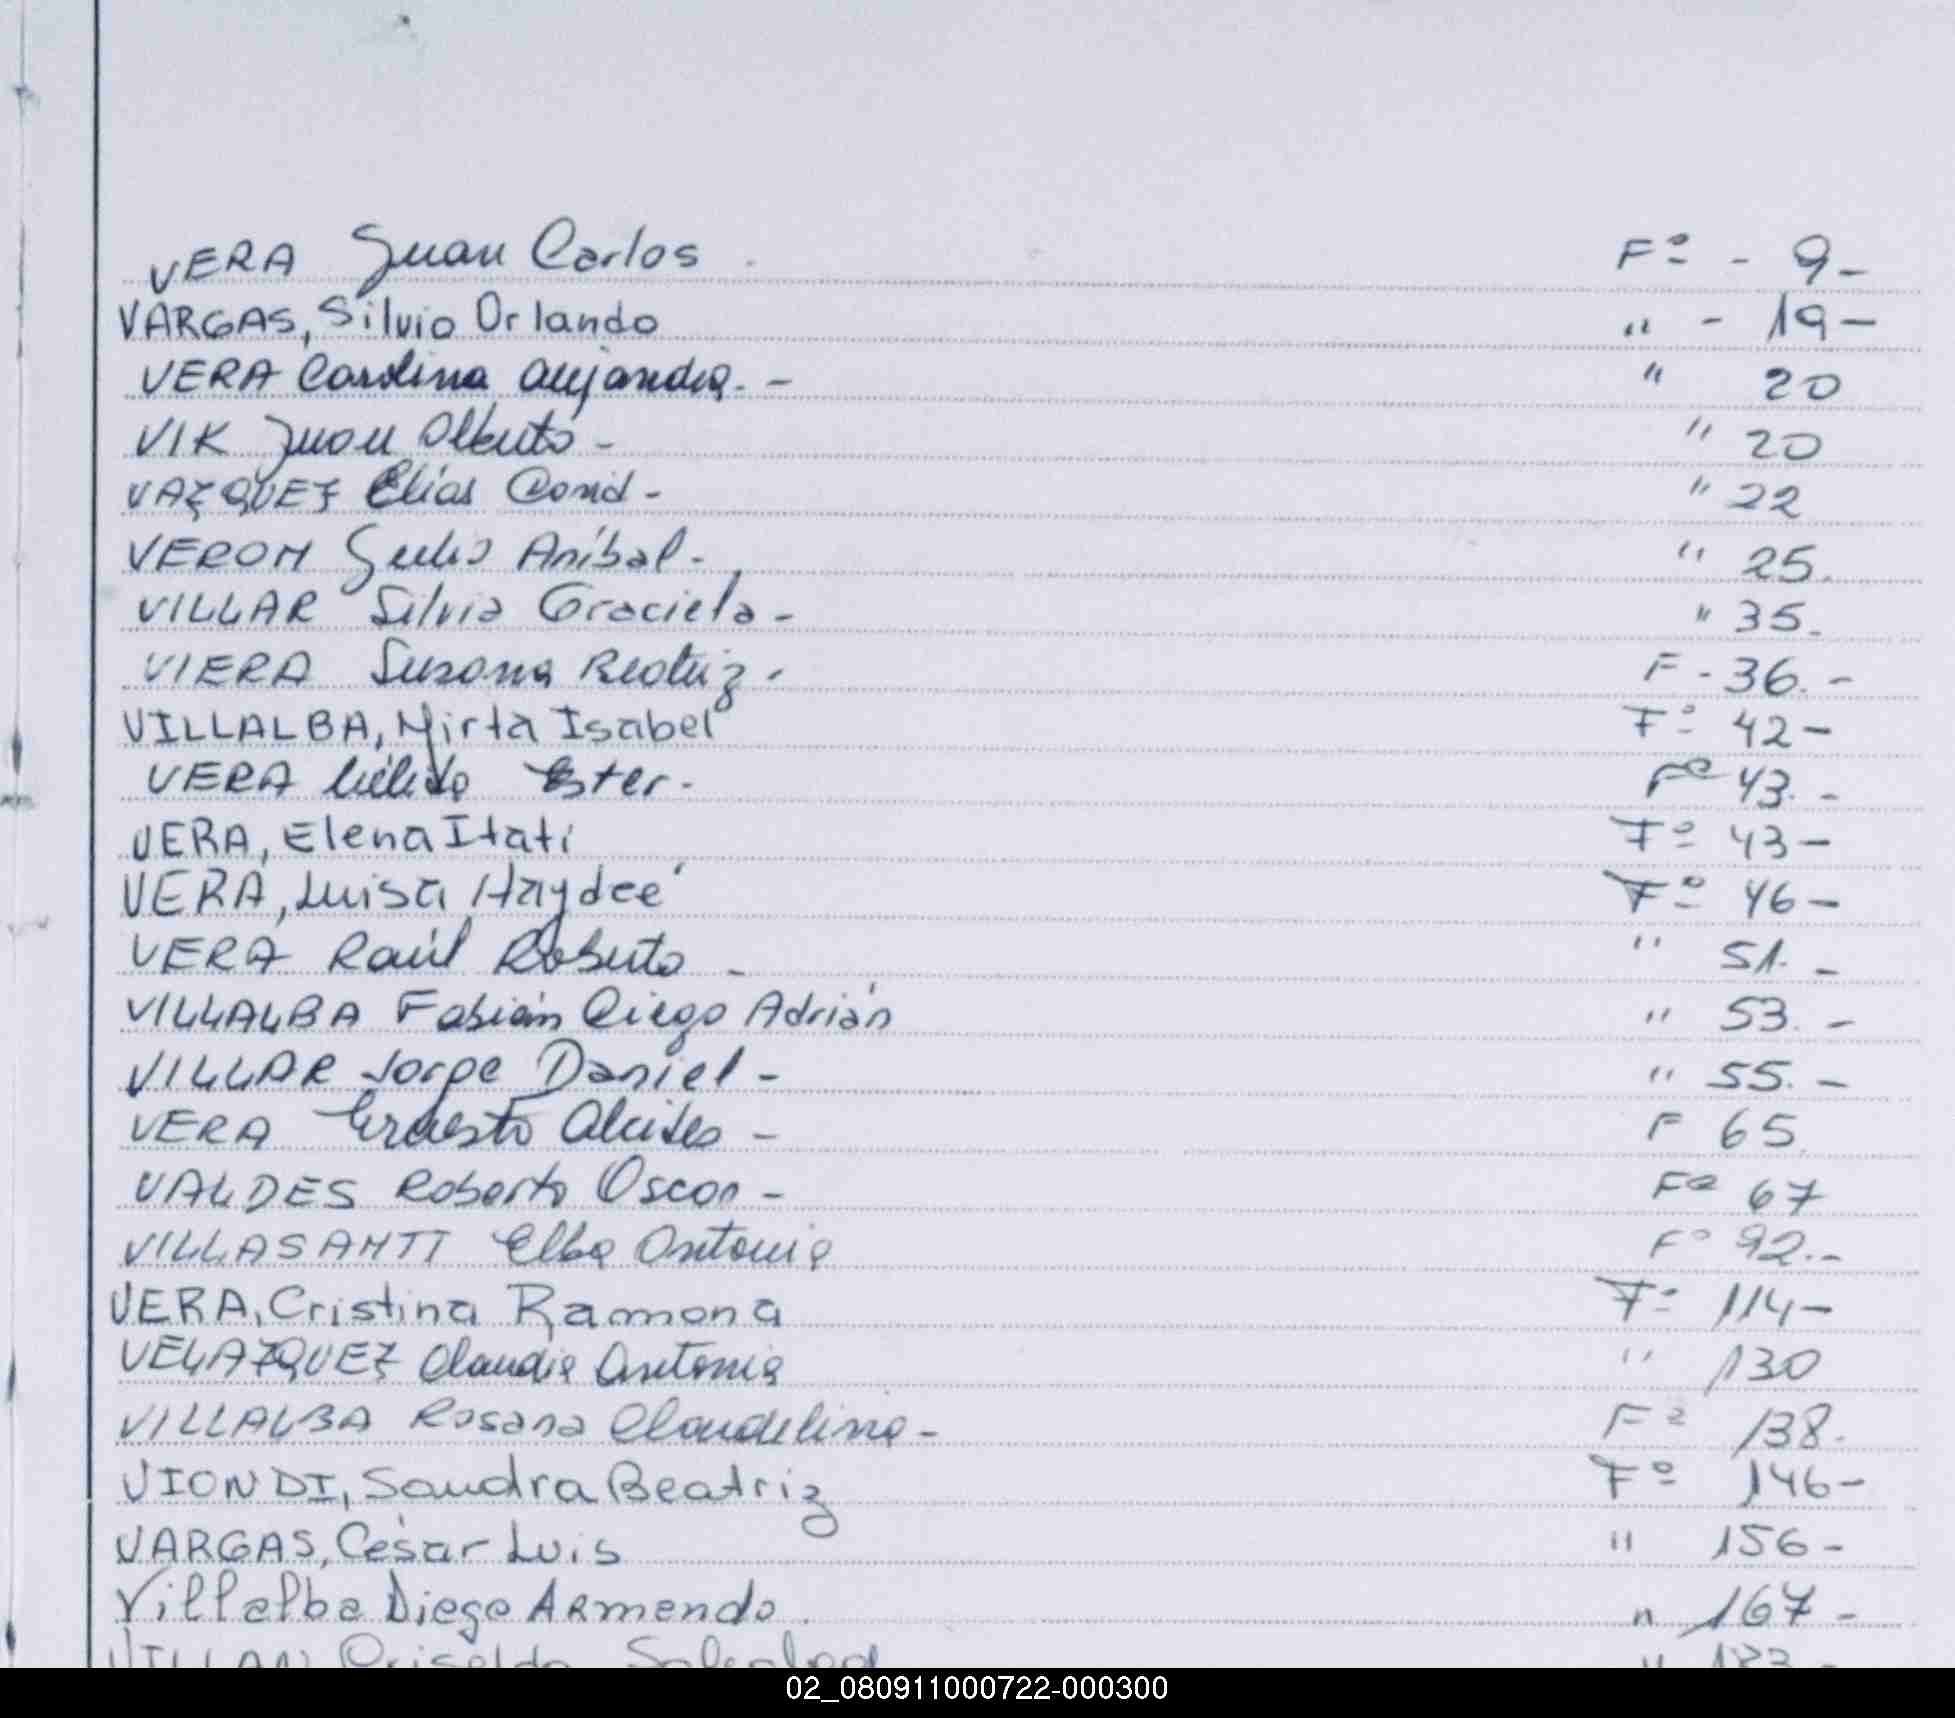 VERA Juan Carlos F° - 9-
VARGAS, Silvio Orlando " - 19-
VERA Carolina Alejandra. - " 20
VIK Juan Alberto - " 20
VAZQUEZ Elias David - " 22
VERON Julio Aníbal - " 25.
VILLAR Silvia Graciela - " 35.
VIERA Susana Beatriz - F - 36. -
VILLALBA, Mirta Isabel F° 42-
VERA Ester. F° 43. -
VERA, Elena Itatí F° 43-
VERA, Luisa Haydeé F° 46-
VERA Raúl Roberto - " 51. -
VILLALBA Fabián Diego Adrián " 53. -
VILLAR Jorge Daniel - " 55. -
VERA Ernesto Alcides - F 65.
VALDES Roberto Oscar - F° 67
VILLASANTI Elba Antonia F° 92. -
VERA, Cristina Ramona F° 114-
VELAZQUEZ Claudia Antonia " 130
VILLALBA Rosana Claudelina - F° 138.
VIONDI, Sandra Beatriz F° 146-
VARGAS, César Luis " 156-
Villalba Diego Armando. " 167 -
02_080911000722-000300